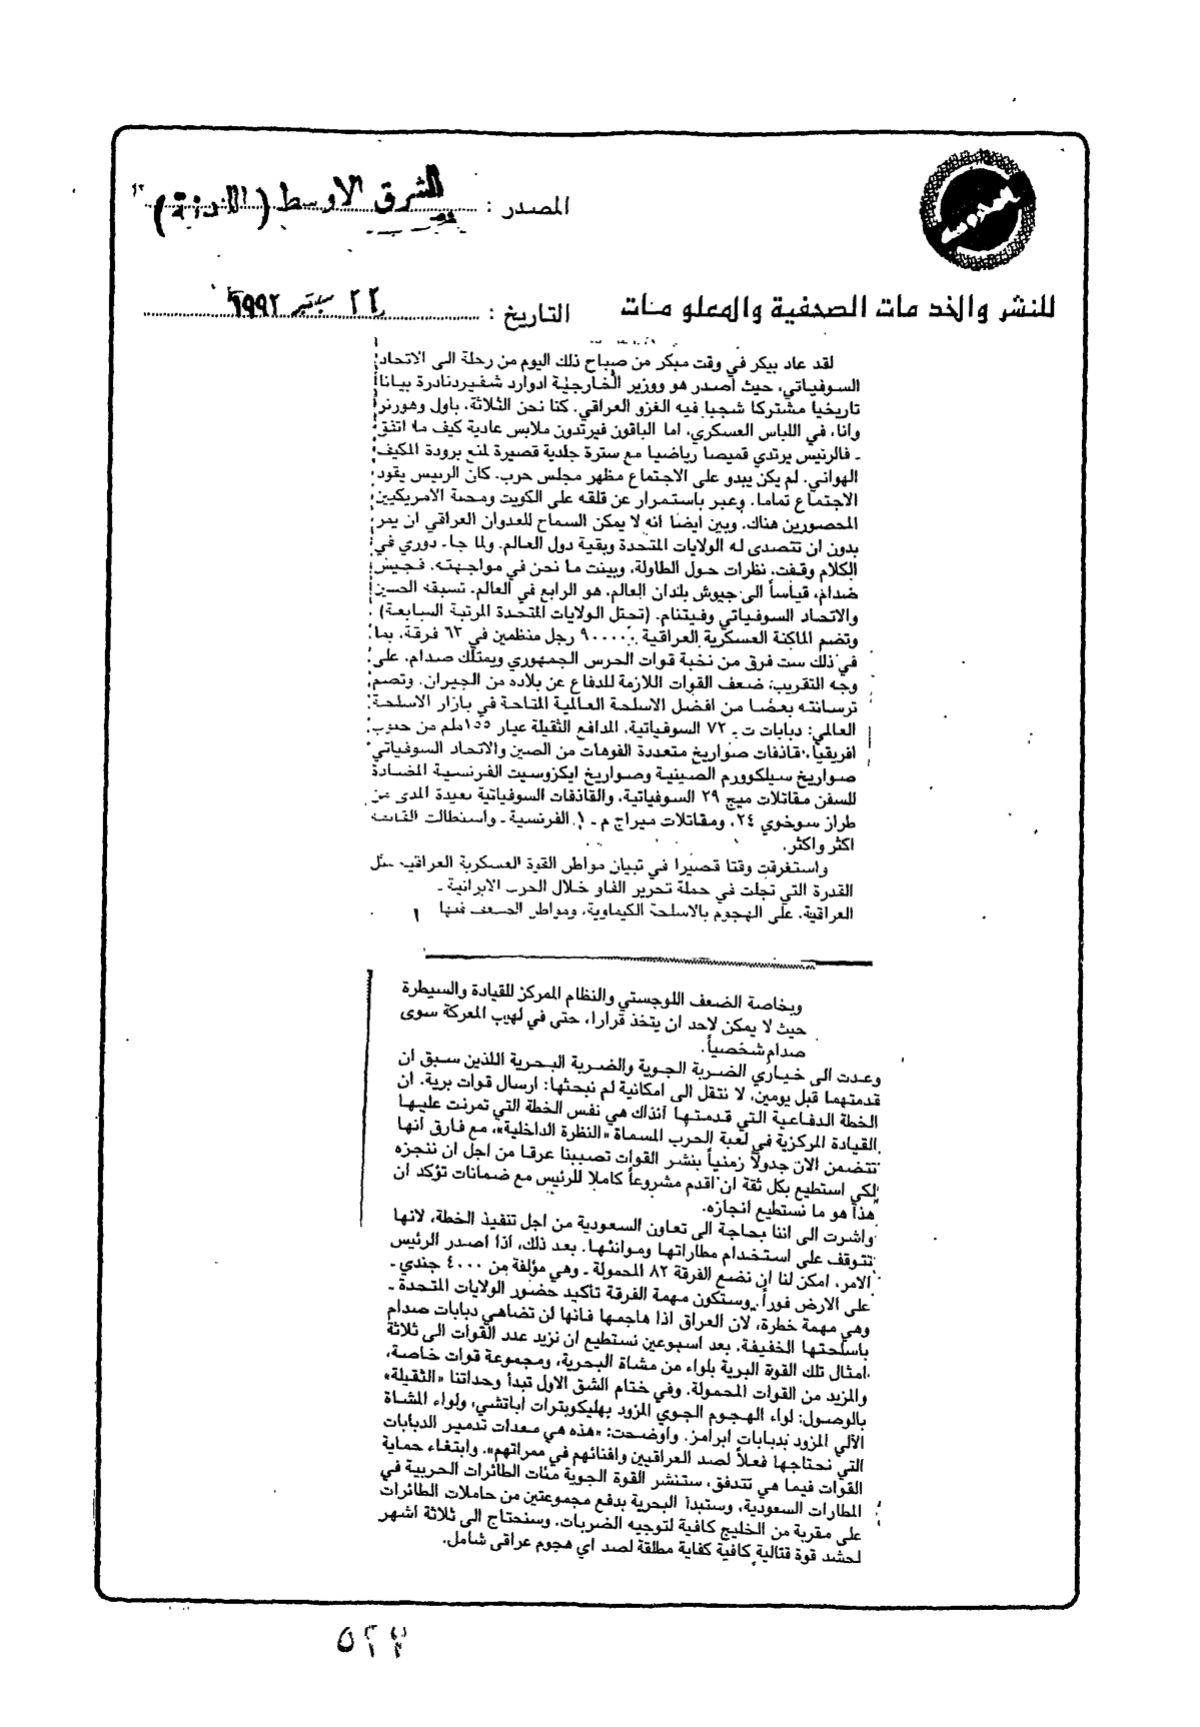 المصدر : الشرق الاوسط (اللندنية)
للنشر والخدمات الصحفية والمعلومات
التاريخ : ٢٢ سبتمبر ١٩٩٢
لقد عاد بيكر في وقت مبكر من صباح ذلك اليوم من رحلة الى الاتحاد
السوفياتي، حيث اصدر هو ووزير الخارجية ادوارد شفيردنادرة بيانا
تاريخيا مشتركا شجبا فيه الغزو العراقي. كنا نحن الثلاثة، باول وهورنر
وانا، في اللباس العسكري، اما الباقون فيرتدون ملابس عادية كيف ما اتفق
ـ فالرئيس يرتدي قميصا رياضيا مع سترة جلدية قصيرة لمنع برودة المكيف
الهوائي. لم يكن يبدو على الاجتماع مظهر مجلس حرب. كان الرئيس يقود
الاجتماع تماما. وعبر باستمرار عن قلقه على الكويت ومحنة الامريكيين
المحصورين هناك. وبين ايضا انه لا يمكن السماح للعدوان العراقي ان يمر
بدون ان تتصدى له الولايات المتحدة وبقية دول العالم. ولما جاء دوري في
الكلام وقفت. نظرات حول الطاولة، وبينت ما نحن في مواجهته. فجيش
ضدام، قياساً الى جيوش بلدان العالم، هو الرابع في العالم. تسبقه الصين
والاتحاد السوفياتي وفيتنام. (تحتل الولايات المتحدة المرتبة السابعة)
وتضم الماكنة العسكرية العراقية ٩٠٠٠٠٠ رجل منظمين في ٦٣ فرقة، بما
في ذلك ست فرق من نخبة قوات الحرس الجمهوري ويمتلك صدام، على
وجه التقريب، ضعف القوات اللازمة للدفاع عن بلاده من الجيران. وتضم
ترسانته بعضا من افضل الاسلحة العالمية المتاحة في بازار الاسلحة
العالمي: دبابات ت ـ ٧٢ السوفياتية، المدافع الثقيلة عيار ١٥٥ملم من جنوب
افريقيا، قاذفات صواريخ متعددة الفوهات من الصين والاتحاد السوفياتي
صواريخ سيلكوورم الصينية وصواريخ ايكزوسيت الفرنسية المضادة
للسفن مقاتلات ميج ٢٩ السوفياتية، والقاذفات السوفياتية بعيدة المدى من
طراز سوخوي ٢٤، ومقاتلات ميراج م ـ ١ الفرنسية ـ واستطالت القائمة
اكثر واكثر.
واستغرقت وقتا قصيرا في تبيان مواطن القوة العسكرية العراقية مثل
القدرة التي تجلت في حملة تحرير الفاو خلال الحرب الايرانية ـ
العراقية، على الهجوم بالاسلحة الكيماوية، ومواطن الضعف فيها
وبخاصة الضعف اللوجستي والنظام الممركز للقيادة والسيطرة
حيث لا يمكن لاحد ان يتخذ قرارا، حتى في لهيب المعركة سوى
صدام شخصياً.
وعدت الى خياري الضربة الجوية والضربة البحرية اللذين سبق ان
قدمتهما قبل يومين، لا نتقل الى امكانية لم نبحثها: ارسال قوات برية. ان
الخطة الدفاعية التي قدمتها آنذاك هي نفس الخطة التي تمرنت عليها
القيادة المركزية في لعبة الحرب المسماة «النظرة الداخلية»، مع فارق انها
تتضمن الان جدولاً زمنياً بنشر القوات تصببنا عرقا من اجل ان ننجزه
لكي استطيع بكل ثقة ان اقدم مشروعاً كاملا للرئيس مع ضمانات تؤكد ان
هذا هو ما نستطيع انجازه.
واشرت الى اننا بحاجة الى تعاون السعودية من اجل تنفيذ الخطة، لانها
تتوقف على استخدام مطاراتها وموانئها. بعد ذلك، اذا اصدر الرئيس
الامر، امكن لنا ان نضع الفرقة ٨٢ المحمولة ـ وهي مؤلفة من ٤٠٠٠ جندي ـ
على الارض فوراً. وستكون مهمة الفرقة تأكيد حضور الولايات المتحدة ـ
وهي مهمة خطرة، لان العراق اذا هاجمها فانها لن تضاهي دبابات صدام
باسلحتها الخفيفة. بعد اسبوعين نستطيع ان نزيد عدد القوات الى ثلاثة
امثال تلك القوة البرية بلواء من مشاة البحرية، ومجموعة قوات خاصة،
والمزيد من القوات المحمولة. وفي ختام الشق الاول تبدأ وحداتنا «الثقيلة»
بالوصول: لواء الهجوم الجوي المزود بهليكوبترات اباتشي، ولواء المشاة
الآلي المزود بدبابات ابرامز. واوضحت: «هذه هي معدات تدمير الدبابات
التي نحتاجها فعلاً لصد العراقيين وافنائهم في ممراتهم». وابتغاء حماية
القوات فيما هي تتدفق، ستنشر القوة الجوية مئات الطائرات الحربية في
المطارات السعودية، وستبدأ البحرية بدفع مجموعتين من حاملات الطائرات
على مقربة من الخليج كافية لتوجيه الضربات. وسنحتاج الى ثلاثة اشهر
لحشد قوة قتالية كافية كفاية مطلقة لصد اي هجوم عراقي شامل.